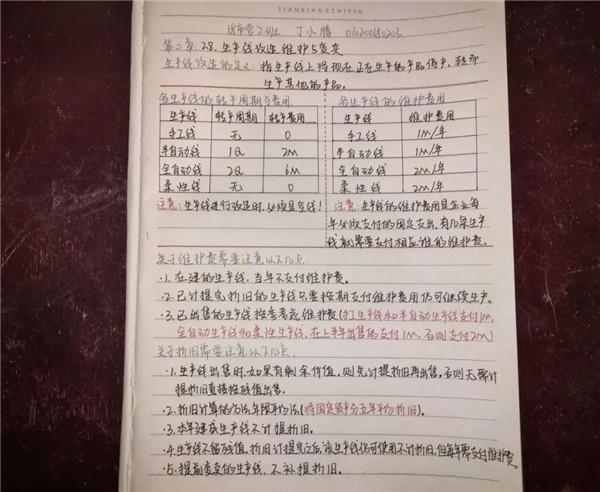 TIANXIANGZHIPIN
18市营2班 丁小腾 010200180203
第二章 2.8. 生产线改造 维护与变卖
生产线改造的定义：指生产线上将现在正在生产的产品停产，转而
生产其他的产品。
各生产线的转产周期与费用：
生产线 转产周期 转产费用
手工线 无 0
半自动线 1Q 2M
全自动线 2Q 6M
柔性线 无 0
注意：生产线进行改造时，必须是空线！
各生产线的维护费用：
生产线 维护费用
手工线 1M/年
半自动线 1M/年
全自动线 2M/年
柔性线 2M/年
注意：生产线的维护费用是企业每
年必须支付的固定支出，有几条生产
线就需要支付相应的维护费。
关于维护费需要注意以下几点：
·1. 在建的生产线，当年不支付维护费。
·2. 已计提完折旧的生产线只要按期支付维护费用仍可继续生产。
·3. 已出售的生产线按季考虑维护费（手工生产线和半自动生产线支付1M，
全自动生产线和柔性生产线，在上半年出售的支付1M，否则支付2M）
关于折旧需要注意以下几点：
·1. 生产线出售时，如果有剩余价值，则先计提折旧再出售，否则无需计
提折旧直接按残值出售。
·2. 折旧计算的方法：年限平均法（将固定资产分五年平均折旧）。
·3. 本年建成生产线不计提折旧。
·4. 生产线不留残值，折旧计提完之后，该生产线仍可使用不计折旧，但每年需支付维护费。
·5. 提前变卖的生产线，不补提折旧。